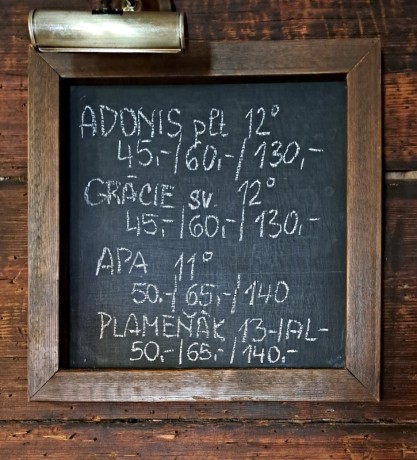 ADONIS plt 12°
45,-/60,-/130,-
GRÁCIE sv. 12°
45,-/60,-/130,-
APA 11°
50.-/65,-/140
PLAMEŇÁK 13-IAL-
50,-/65.-/140.-